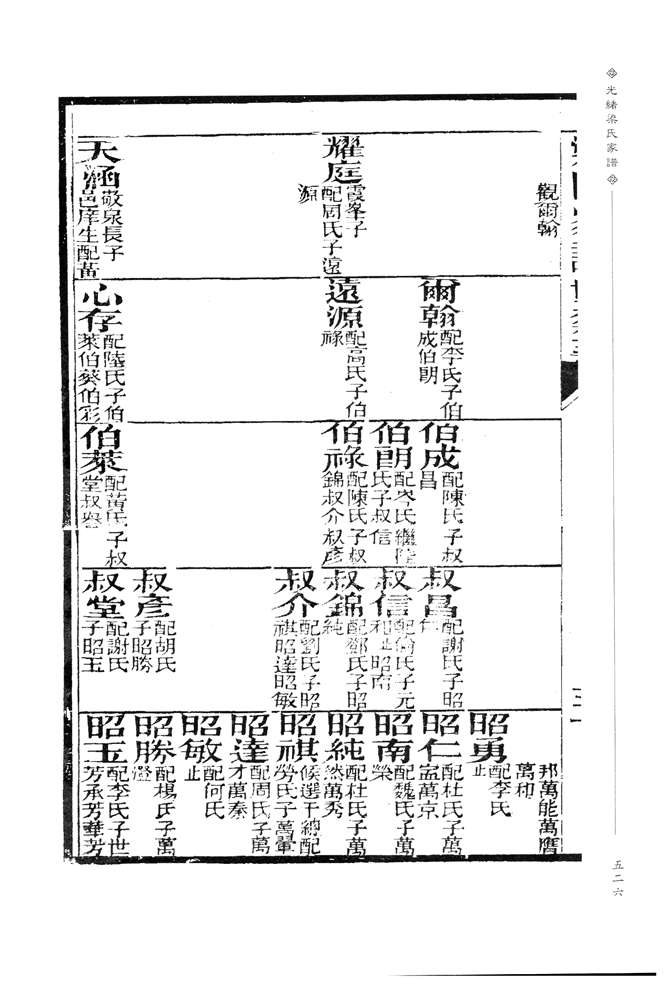 光緒梁氏家譜
五二六
觀爾翰
耀庭
霞峯子
配周氏子遠
源
天涵
敬泉長子
邑庠生配黃
爾翰
配李氏子伯
成伯朗
遠源
配高氏子伯
祿
心存
配陸氏子伯
萊伯葵伯彩
伯成
配陳氏子叔
昌
伯朗
配岑氏繼陸
氏子叔信
伯祿
配陳氏子叔
錦叔介叔彥
伯萊
配黃氏子叔
堂叔譽
叔昌
配謝氏子昭
仁
叔信
配倫氏子元
昭南
叔錦
配鄧氏子昭
純
叔介
配劉氏子昭
祺昭達昭敏
叔彥
配胡氏
子昭勝
叔堂
配謝氏
子昭玉
邦萬能萬膺
萬和
昭勇
配李氏
止
昭仁
配杜氏子萬
宏萬京
昭南
配魏氏子萬
榮
昭純
配杜氏子萬
然萬秀
昭祺
候選千總配
勞氏子萬暈
昭達
配周氏子萬
才萬秦
昭敏
配何氏
止
昭勝
配楊氏子萬
澄
昭玉
配李氏子世
芳承芳華芳